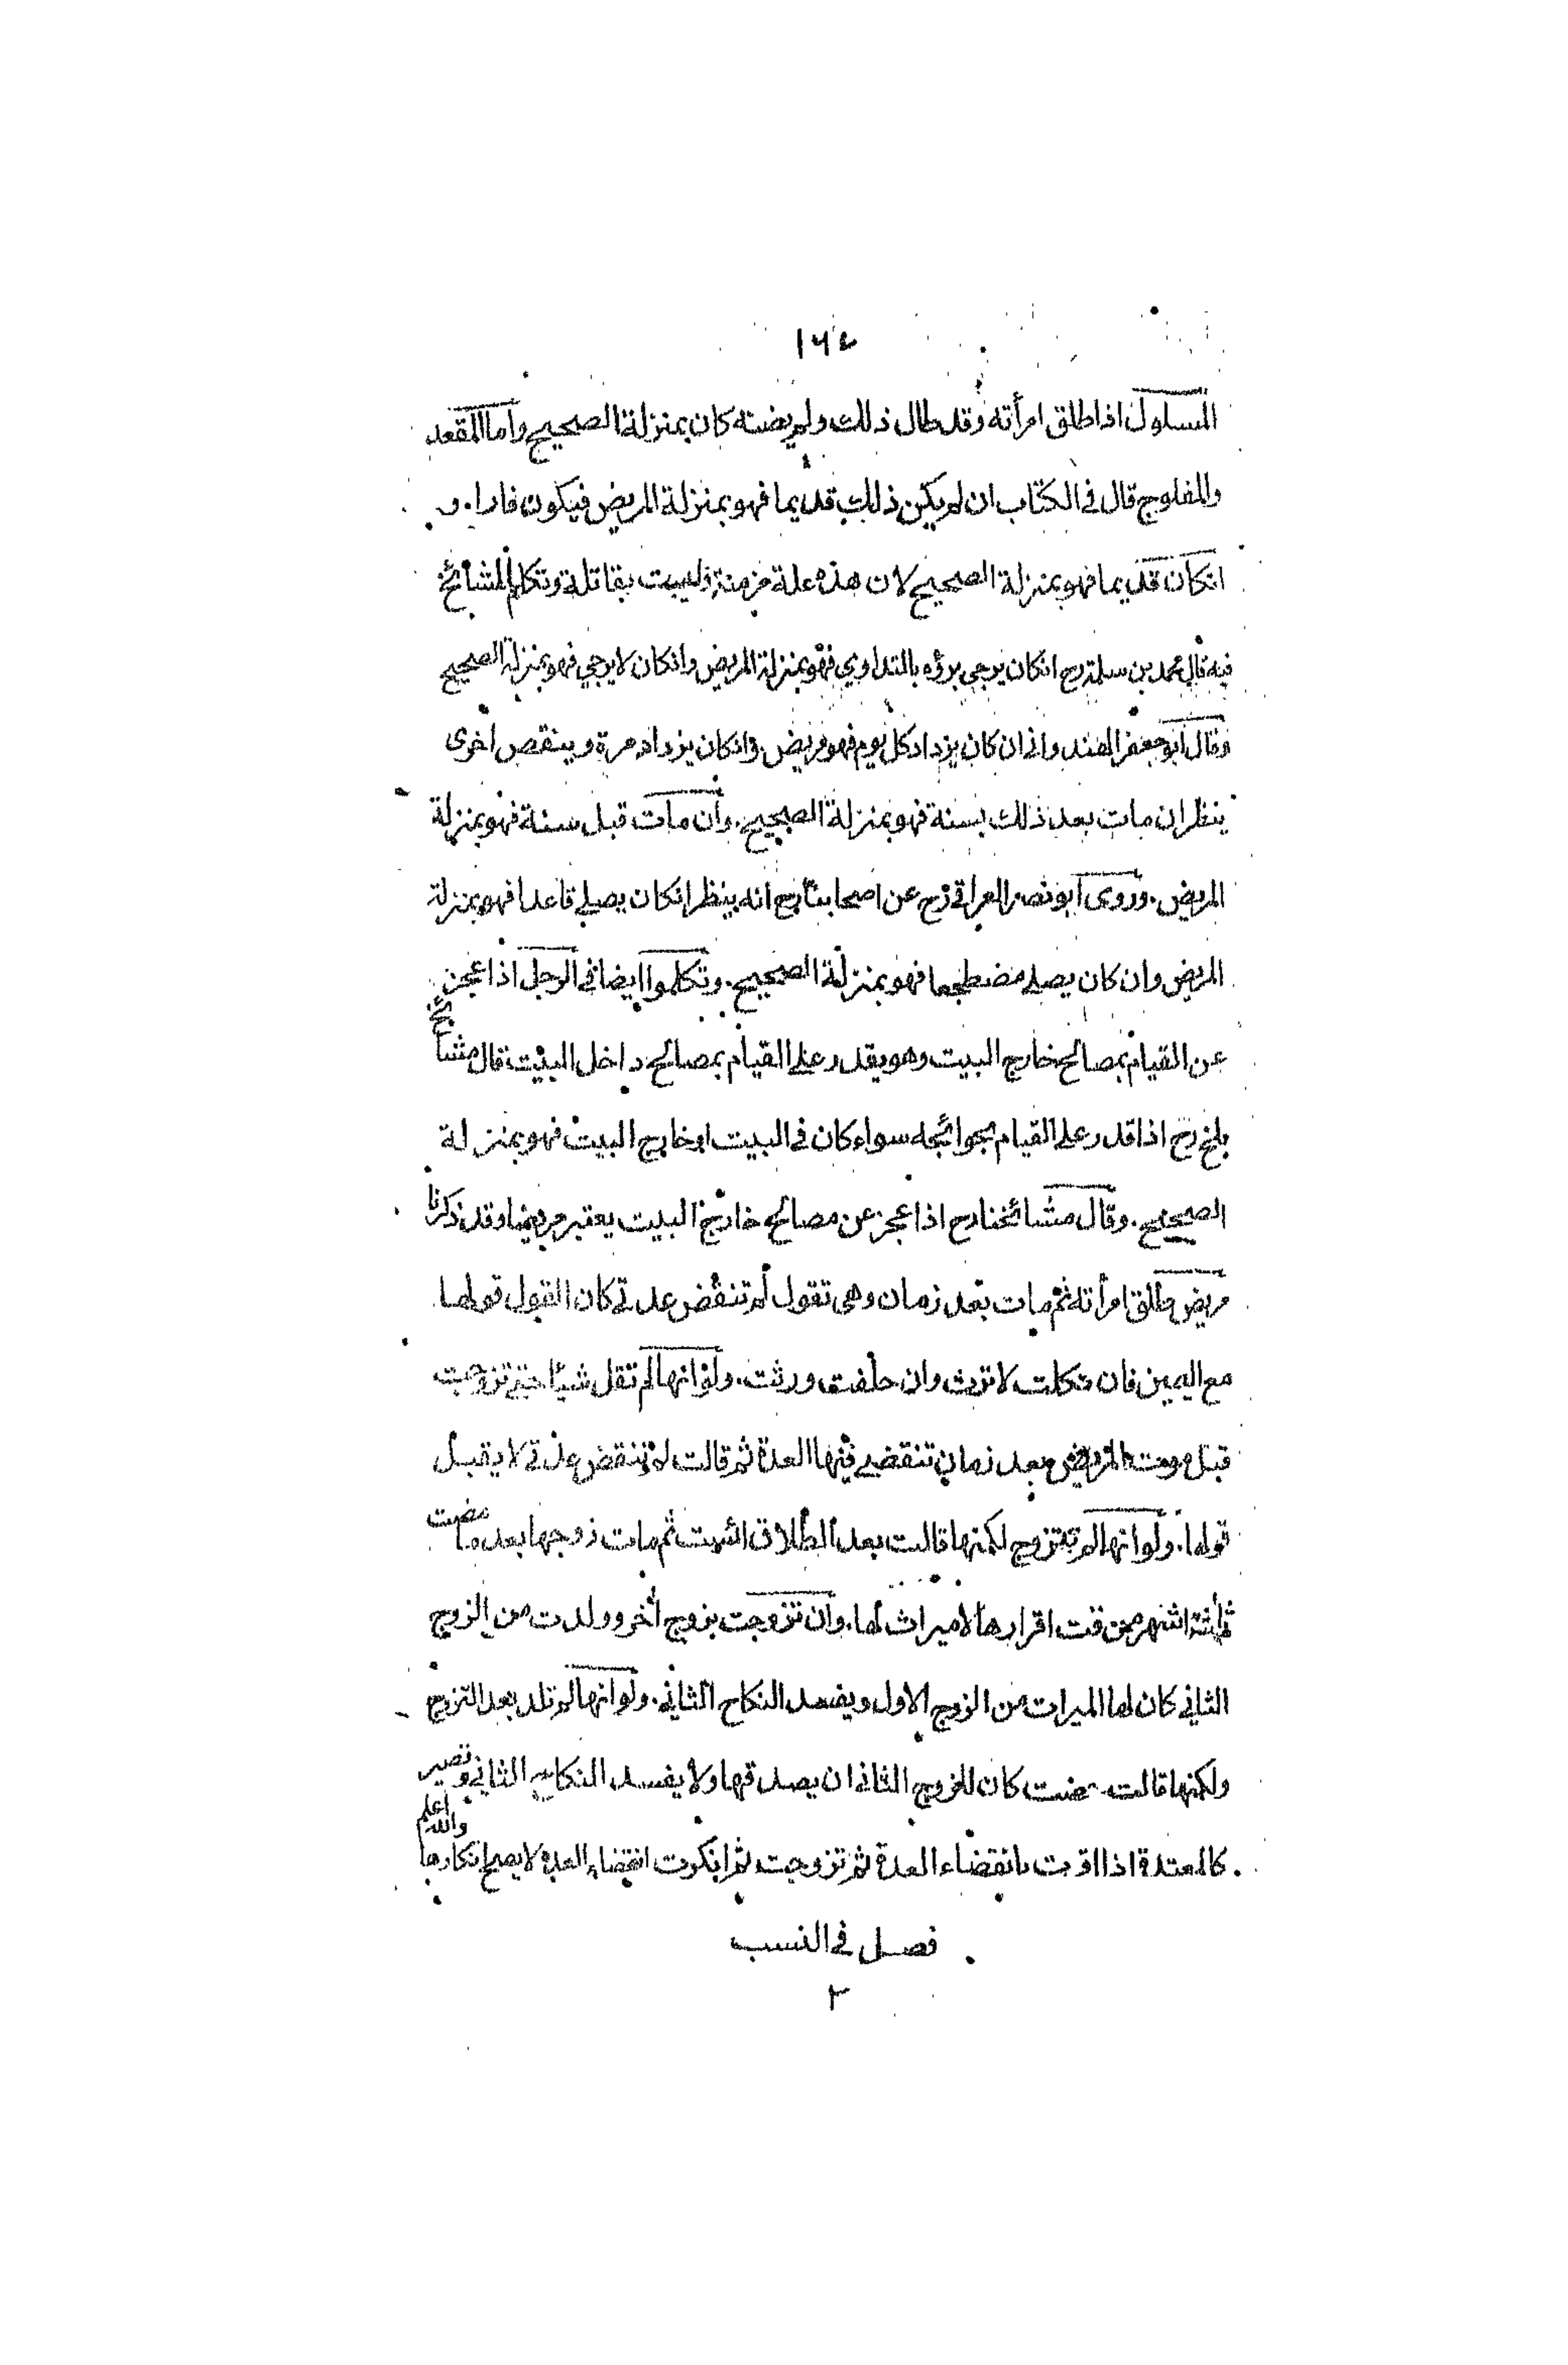 ١٦٤
المسلول اذا طلق امرأته وقد طال ذلك ولم يضنه كان بمنزلة الصحيح واما المقعد
والمفلوج قال في الكتاب ان لم يكن ذلك قديما فهو بمنزلة المريض فيكون فارا. و
انكان قديما فهو بمنزلة الصحيح لان هذه علة مزمنة وليست بقاتلة وتكلم المشائخ
فيه قال محمد بن سلمة رح انكان يرجى برؤه بالتداوي فهو بمنزلة المريض وانكان لا يرجي فهو بمنزلة الصحيح
وقال ابو جعفر الهندواني ان كان يزداد كل يوم فهو مريض. وانكان يزداد مرة وينقص اخرى
ينظر ان مات بعد ذلك بسنة فهو بمنزلة الصحيح. وان مات قبل سنة فهو بمنزلة
المريض. وروى ابو نصر العراقي رح عن اصحابنا رح انه ينظر انكان يصلي قاعدا فهو بمنزلة
المريض وان كان يصلي مضطجعا فهو بمنزلة الصحيح. وتكلموا ايضا في الرجل اذا عجز
عن القيام بمصالح خارج البيت وهو يقدر على القيام بمصالح داخل البيت قال مشائخ
بلخ رح اذا قدر على القيام بحوائجه سواء كان في البيت او خارج البيت فهو بمنزلة
الصحيح. وقال مشائخنا رح اذا عجز عن مصالح خارج البيت يعتبر مريضا وقد ذكرنا
مريض طلق امرأته ثم مات بعد زمان وهي تقول لم تنقض عدتي كان القول قولها
مع اليمين فان نكلت لا ترث وان حلفت ورثت. ولو انها لم تقل شيئا حتى تزوجت
قبل موت المريض بعد زمان تنقضي فيها العدة ثم قالت لم تنقض عدتي لا يقبل
قولها. ولو انها لم تتزوج لكنها قالت بعد الطلاق ائست ثم مات زوجها بعد ما مضت
ثلثة اشهر من وقت اقرارها لا ميراث لها. وان تزوجت بزوج أخر وولدت من الزوج
الثاني كان لها الميراث من الزوج الاول ويفسد النكاح الثاني. ولو انها لم تلد بعد التزوج
ولكنها قالت حضت كان للزوج الثاني ان يصدقها ولا يفسد النكاح الثاني وتصير
كالمعتدة اذا اقرت بانقضاء العدة ثم تزوجت ثم انكرت انقضاء العدة لا يصح انكارها والله اعلم
فصل في النسب
٢